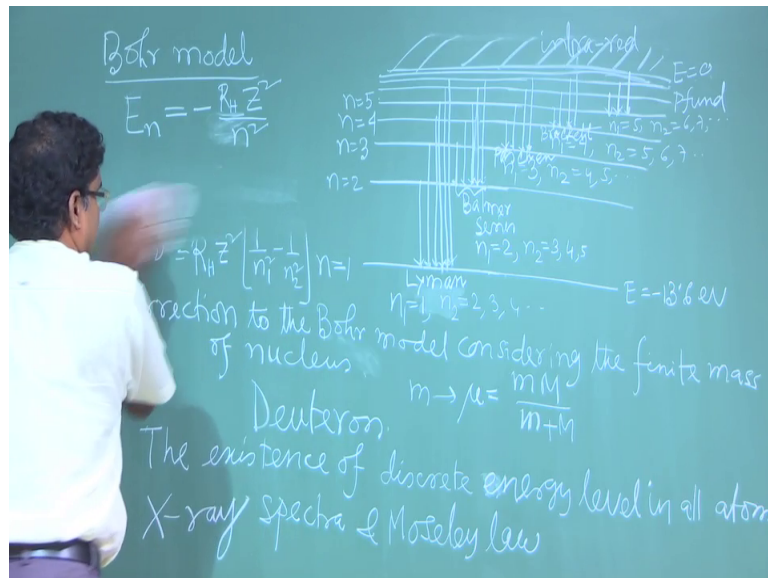 Bohr model
E_n = - R_H Z² / n²
infra-red
E=0
n=5
Pfund
n=4
n₁=5, n₂=6,7,...
n=3
n₁=4, n₂=5,6,7..
n₁=3, n₂=4,5,..
n=2
Balmer
n₁=2, n₂=3,4,5
= R_H Z² [1/n₁² - 1/n₂²]
n=1
Lyman
E=-13.6 eV
n₁=1, n₂=2,3,4...
rection to the Bohr model considering the finite mass
of nucleus
m → μ = mM / m+M
Deuteron.
The existence of discrete energy level in all atom
X-ray spectra & Moseley law